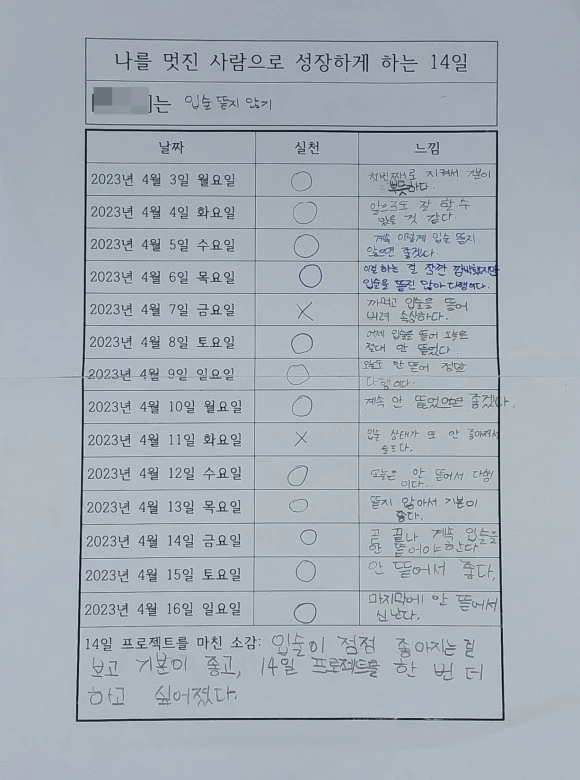 나를 멋진 사람으로 성장하게 하는 14일
]는 입술 뜯지 않기
날짜 실천 느낌
2023년 4월 3일 월요일 ○ 첫번째로 지켜서 기분이
뿌듯하다.
2023년 4월 4일 화요일 ○ 앞으로도 잘 할 수
있을 것 같다.
2023년 4월 5일 수요일 ○ 계속 이렇게 입술 뜯지
않으면 좋겠다.
2023년 4월 6일 목요일 ○ 이걸 하는 걸 잠깐 깜박했지만
입술을 뜯진 않아 다행이다.
2023년 4월 7일 금요일 × 까먹고 입술을 뜯어
버려 속상하다.
2023년 4월 8일 토요일 ○ 어제 입술을 뜯어 오늘은
절대 안 뜯었다.
2023년 4월 9일 일요일 ○ 오늘도 안 뜯어 정말
다행이다.
2023년 4월 10일 월요일 ○ 계속 안 뜯었으면 좋겠다.
2023년 4월 11일 화요일 × 입술 상태가 또 안 좋아져서
슬프다.
2023년 4월 12일 수요일 ○ 오늘은 안 뜯어서 다행
이다.
2023년 4월 13일 목요일 ○ 뜯지 않아서 기분이
좋다.
2023년 4월 14일 금요일 ○ 곧 끝나 계속 입술을
안 뜯어야 한다
2023년 4월 15일 토요일 ○ 안 뜯어서 좋다.
2023년 4월 16일 일요일 ○ 마지막에 안 뜯어서
신난다.
14일 프로젝트를 마친 소감: 입술이 점점 좋아지는 걸
보고 기분이 좋고, 14일 프로젝트를 한 번 더
하고 싶어졌다.